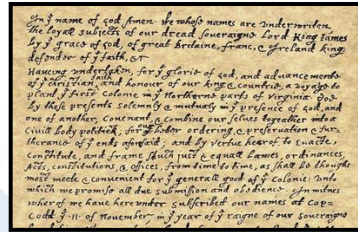 In yͤ name of god Amen. We whose names are underwriten,
the loyall subjects of our dread soveraigne Lord King James
by yͤ grace of god, of great Britaine, franc, & Ireland king,
defender of yͤ faith, &c
Haveing undertaken, for yͤ glorie of god, and advancemente
of yͤ christian faith and honour of our king & countrie, a voyage to
plant yͤ first colonie in yͤ Northerne parts of Virginia. Doe
by these presents solemnly & mutualy in yͤ presence of god, and
one of another, covenant, & combine our selves togeather into a
civill body politick; for yͤ better ordering, & preservation & fur-
therance of yͤ ends aforesaid; and by vertue hearof, to enacte,
constitute, and frame shuch just & equall Lawes, ordinances,
Acts, constitutions, & offices, from time to time, as shall be thought
most meete & convenient for yͤ generall good of yͤ Colonie: unto
which we promise all due submission and obedience. In witnes
wherof we have hereunder subscribed our names at Cap=
Codd yͤ ·11· of November, in yͤ year of yͤ raigne of our soveraigne